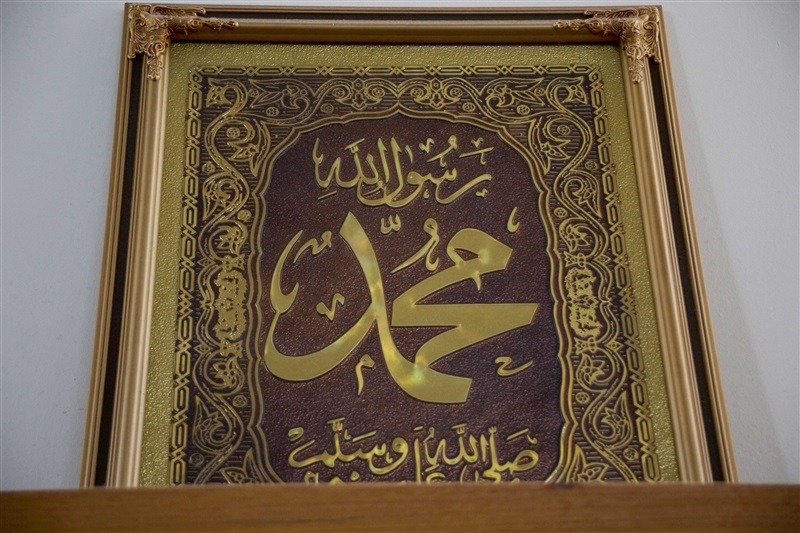 رَسُولُ اللّٰه
مُحَمَّد
صَلَّى اللّٰهُ عَلَيْهِ وَسَلَّمَ